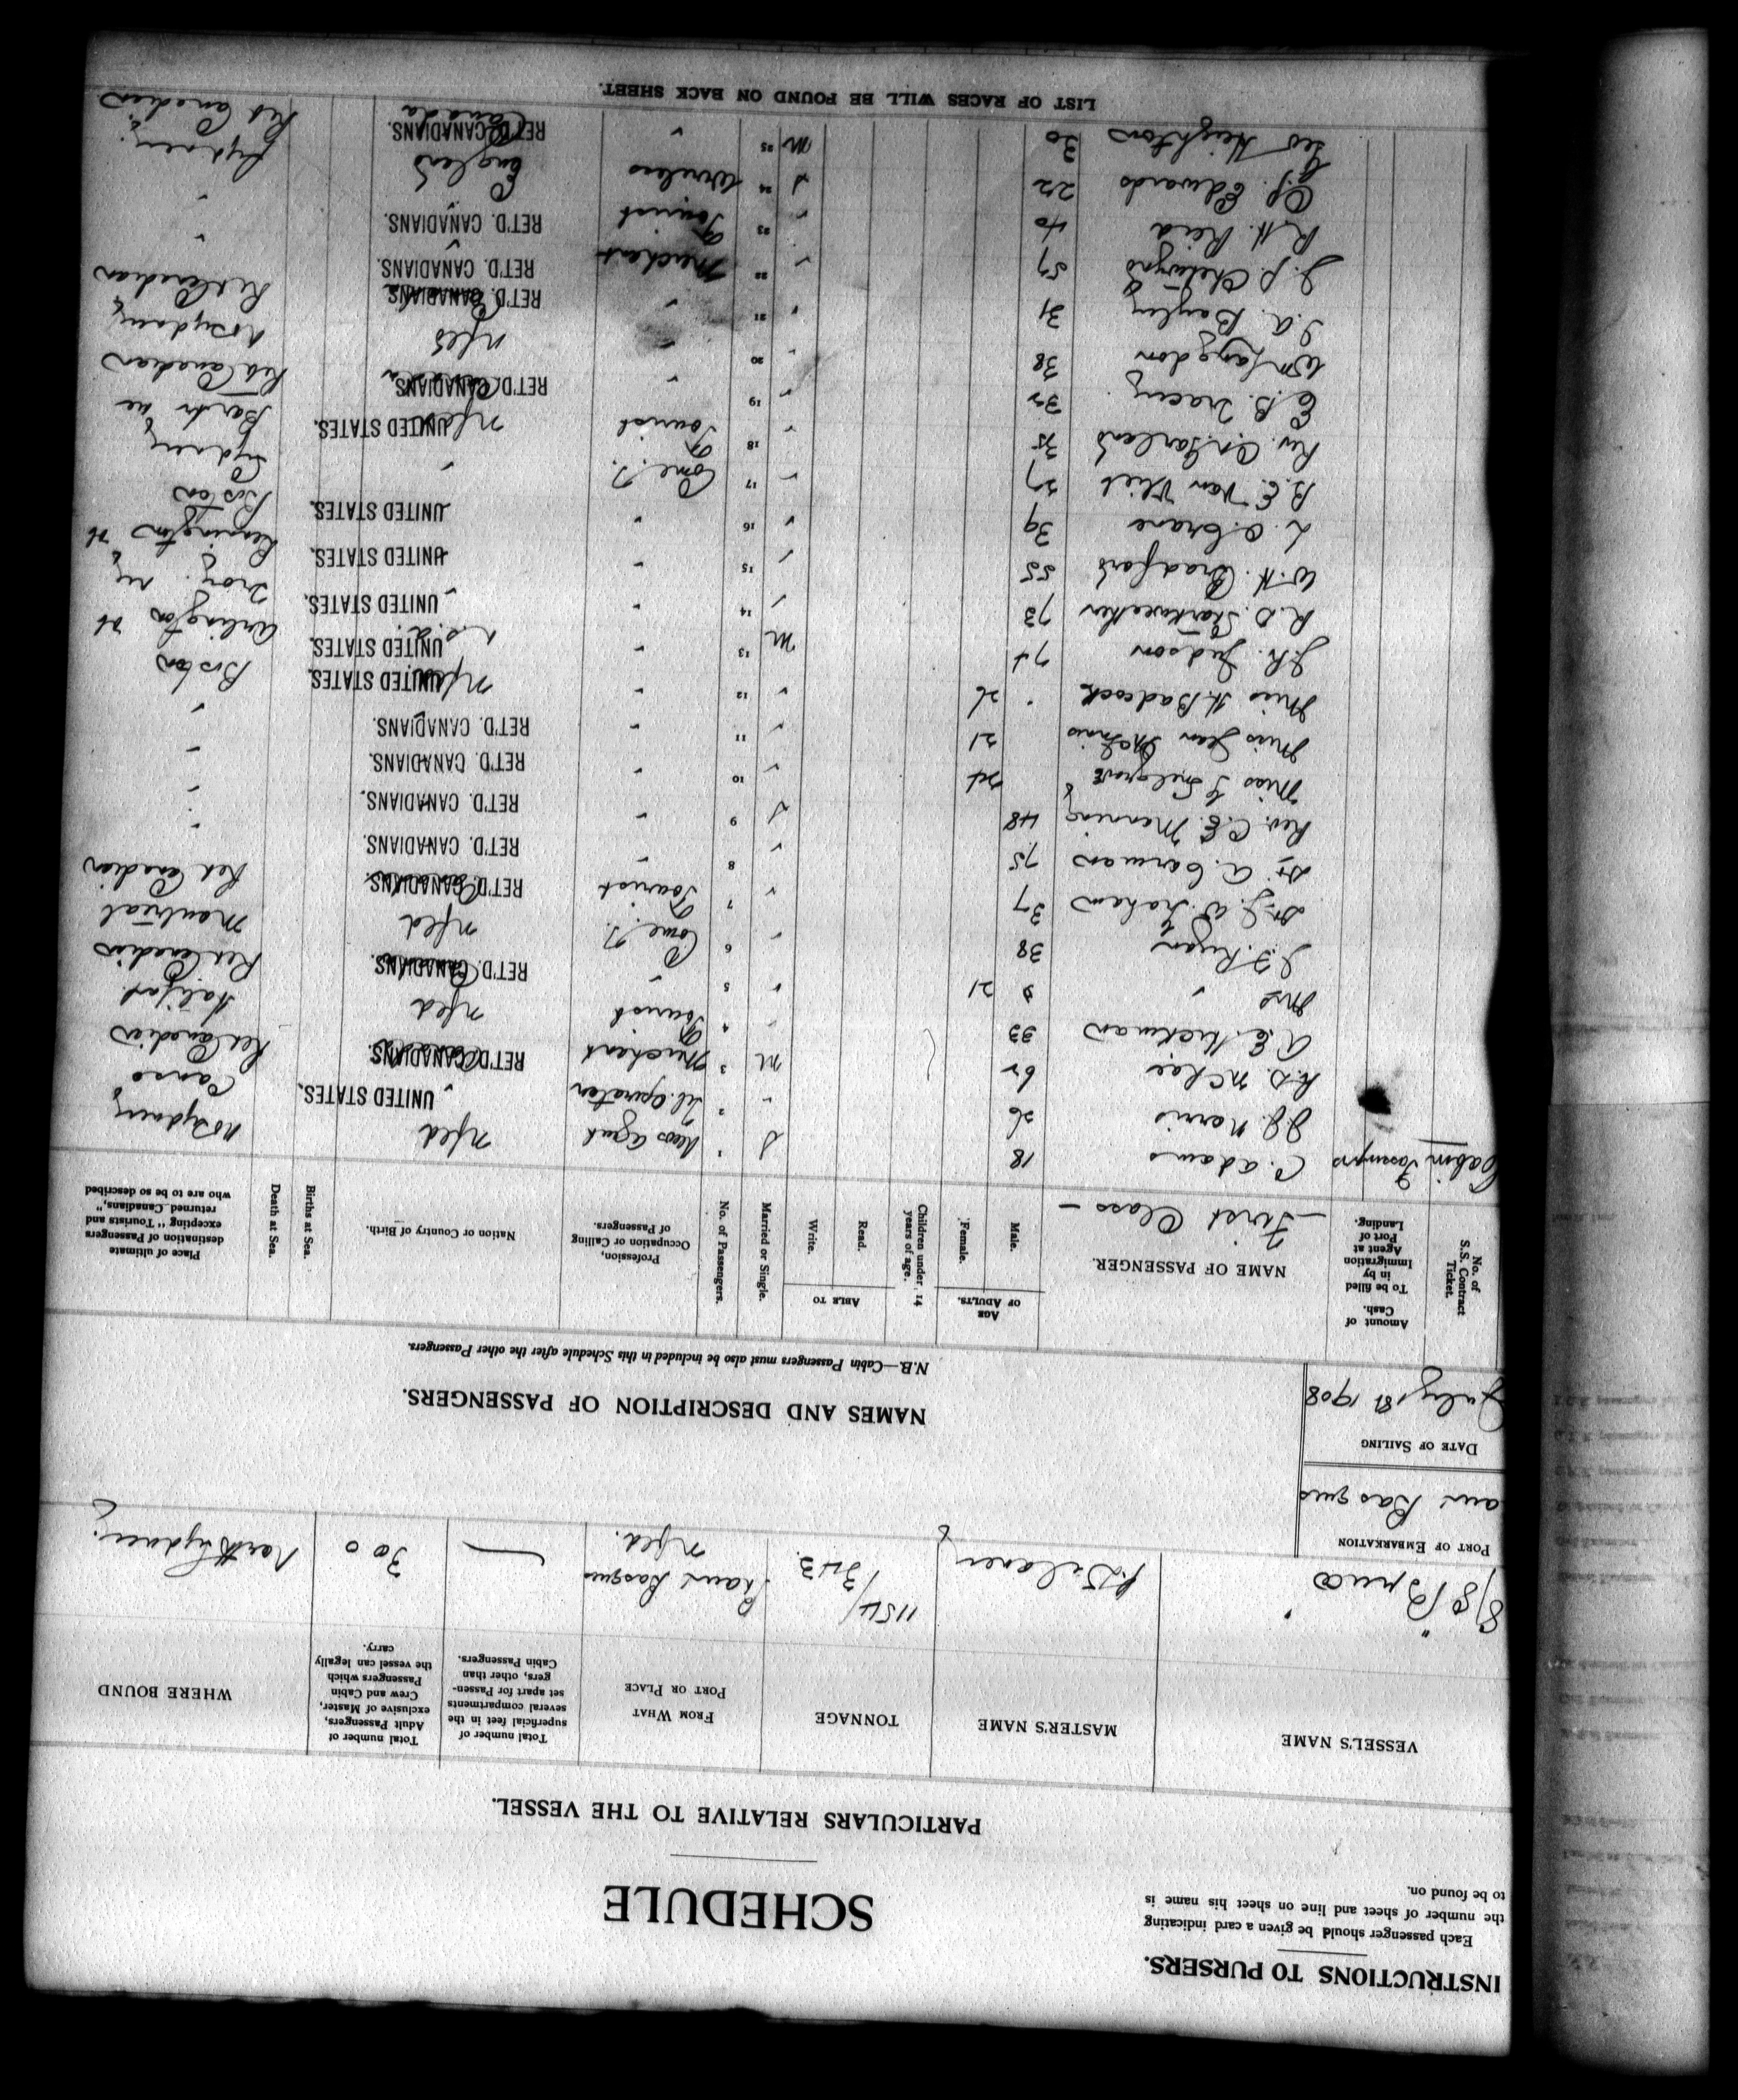 INSTRUCTIONS TO PURSERS.
Each passenger should be given a card indicating
the number of sheet and line on sheet his name is
to be found on.
SCHEDULE
PARTICULARS RELATIVE TO THE VESSEL.
VESSEL'S NAME
MASTER'S NAME
TONNAGE
FROM WHAT
PORT OR PLACE
Total number of
superficial feet in the
several compartments
set apart for Passen-
gers, other than
Cabin Passengers.
Total number of
Adult Passengers,
exclusive of Master,
Crew and Cabin
Passengers which
the vessel can legally
carry.
WHERE BOUND
S/S "Bruce" Delaney 1154/ Port aux Basques Nfld. 300 North Sydney
PORT OF EMBARKATION
aux Basques
DATE OF SAILING
July 1st 1908
NAMES AND DESCRIPTION OF PASSENGERS.
N.B.—Cabin Passengers must also be included in this Schedule after the other Passengers.
No. of
S.S. Contract
Ticket.
Amount of
Cash.
To be filled
in by
Immigration
Agent at
Port of
Landing.
NAME OF PASSENGER.
— First Class —
AGE
OF ADULTS.
Male.
Female.
Children under 14
years of age.
ABLE TO
Read.
Write.
Married or Single.
No. of Passengers.
Profession,
Occupation or Calling
of Passengers.
Nation or Country of Birth.
Births at Sea.
Death at Sea.
Place of ultimate
destination of Passengers
excepting "Tourists and
returned Canadians,"
who are to be so described
Cabin Passengers C. Adams 18 S 1 News Agent Nfld No Sydney
J.J. Norris 26 " 2 Tel. Operator " UNITED STATES. Canso
R.D. McRae 62 M 3 Merchant RET'D. CANADIANS. Ret Canadian
A.E. Hickman 33 " 4 Tourist Nfld Halifax
Mrs " 21 " 5 " RET'D. CANADIANS. Ret Canadian
J.J. Ryan 38 " 6 Come. T. Nfld Montreal
Dr. J.W. Graham 37 " 7 Tourist RET'D. CANADIANS. Ret Canadian
Dr. A. Carman 75 " 8 " RET'D. CANADIANS. "
Rev. C.E. Manning 48 S 9 " RET'D. CANADIANS. "
Miss 24 " 10 " RET'D. CANADIANS. "
Miss Jean McInnis 21 " 11 " RET'D. CANADIANS. "
Miss H. Badcock 26 " 12 " Nfld UNITED STATES. Boston
J.R. Judson 74 M 13 " U.S.A. UNITED STATES. Arlington Vt
R.D. Starkweather 73 " 14 " UNITED STATES. Troy. NY
W.H. Bradford 55 " 15 " UNITED STATES. Bennington Vt
L. C. Crane 39 " 16 " UNITED STATES. Boston
B.E. Van Vliet 27 " 17 Come. T. " Sydney
Rev. 35 " 18 Tourist Nfld UNITED STATES.
E.B. Tracey 32 " 19 " RET'D. CANADIANS. Ret Canadian
Wm Langdon 38 " 20 " Nfld No Sydney
J.A. Bayley 31 " 21 " RET'D. CANADIANS. Ret Canadian
J.P. Chetwynd 57 " 22 Merchant RET'D. CANADIANS. "
R.H. Reid 40 " 23 Tourist RET'D. CANADIANS. "
C.J. Edwards 22 S 24 Wireless England Sydney
Geo Heighton 30 M 25 " Canada RET'D. CANADIANS. Ret Canadian
LIST OF RACES WILL BE FOUND ON BACK SHEET.